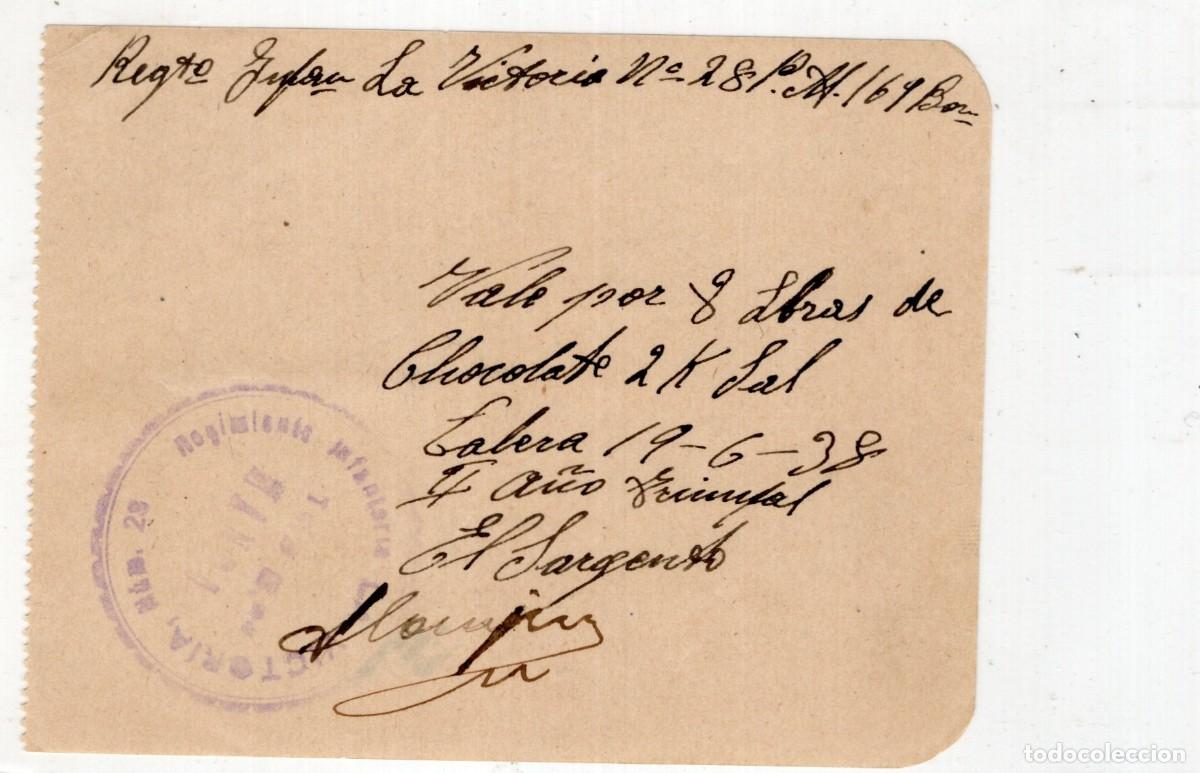 Regto Infan La Victoria No 28 P.M. 169 Bon
Vale por 8 Lbras de
Chocolate 2 K Sal
Zalera 19-6-38
II año Triunfal
El Sargento
Regimiento Infantería La VICTORIA, Núm. 28
todocoleccion